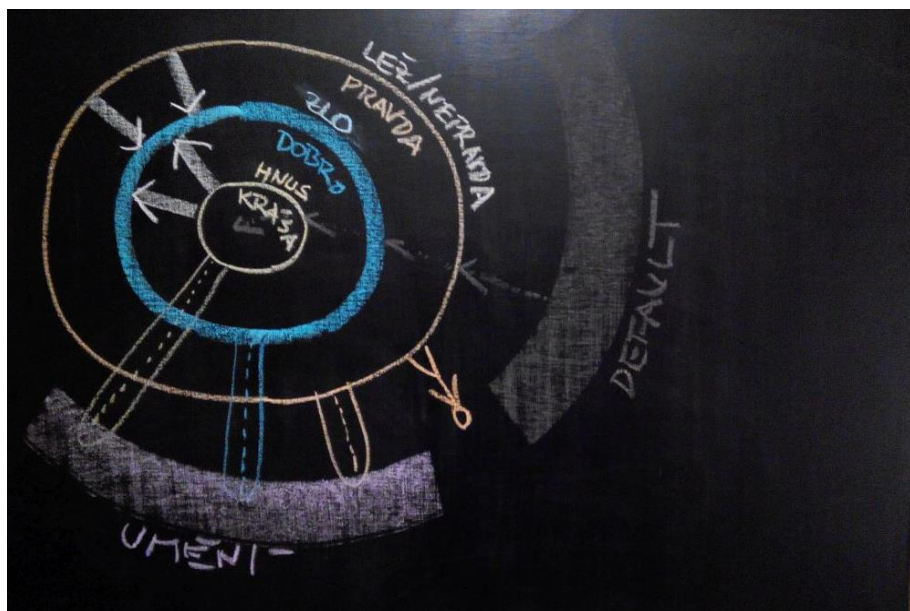 LEŽ/NEPRAVDA
PRAVDA
ZLO
DOBRO
HNUS
KRÁSA
DEFAULT
UMĚNÍ